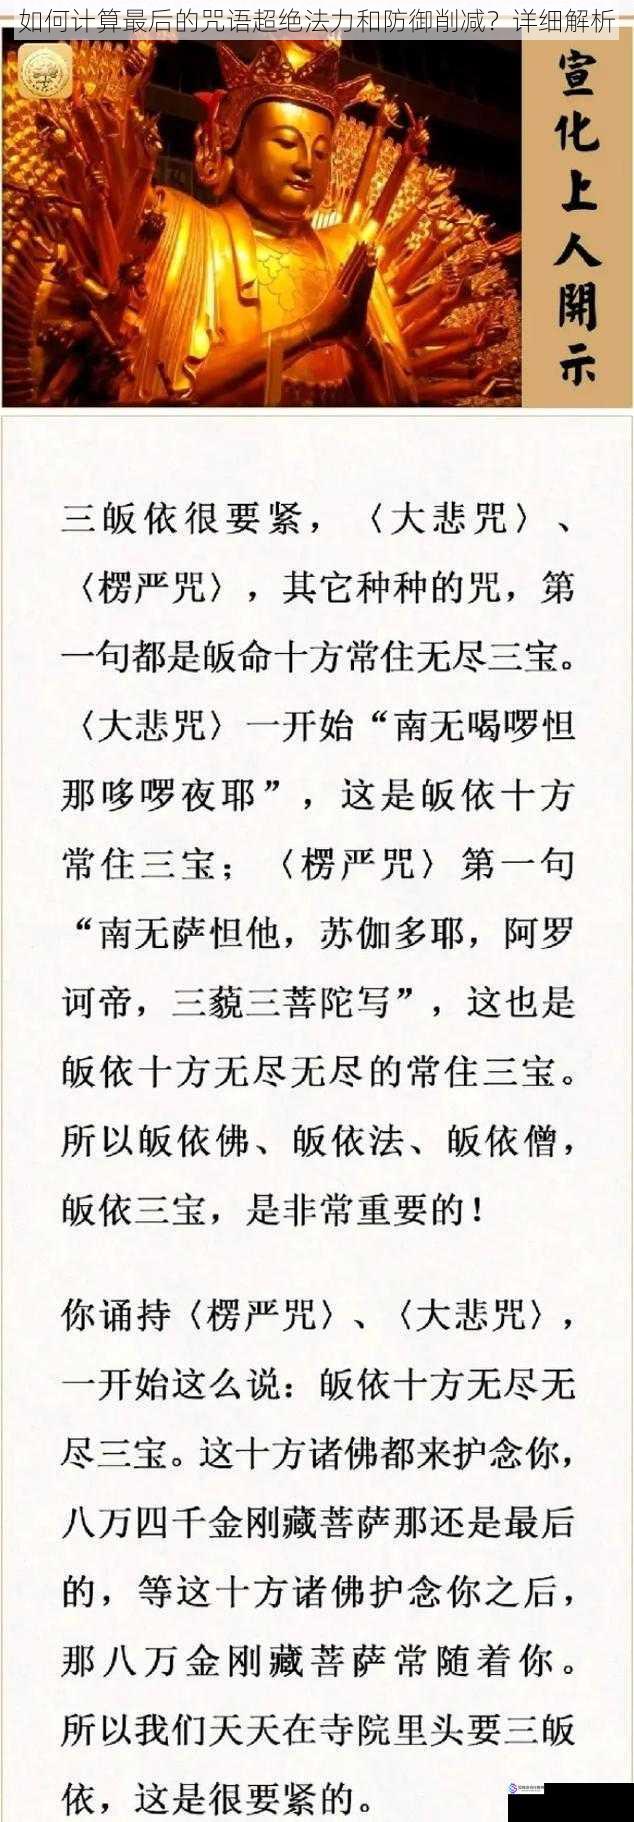 如何计算最后的咒语超绝法力和防御削减？详细解析
宣化上人開示
三皈依很要紧，〈大悲咒〉、
〈楞严咒〉，其它种种的咒，第
一句都是皈命十方常住无尽三宝。
〈大悲咒〉一开始“南无喝啰怛
那哆啰夜耶”，这是皈依十方
常住三宝；〈楞严咒〉第一句
“南无萨怛他，苏伽多耶，阿罗
诃帝，三藐三菩陀写”，这也是
皈依十方无尽无尽的常住三宝。
所以皈依佛、皈依法、皈依僧，
皈依三宝，是非常重要的！
你诵持〈楞严咒〉、〈大悲咒〉，
一开始这么说：皈依十方无尽无
尽三宝。这十方诸佛都来护念你，
八万四千金刚藏菩萨那还是最后
的，等这十方诸佛护念你之后，
那八万金刚藏菩萨常随着你。
所以我们天天在寺院里头要三皈
依，这是很要紧的。